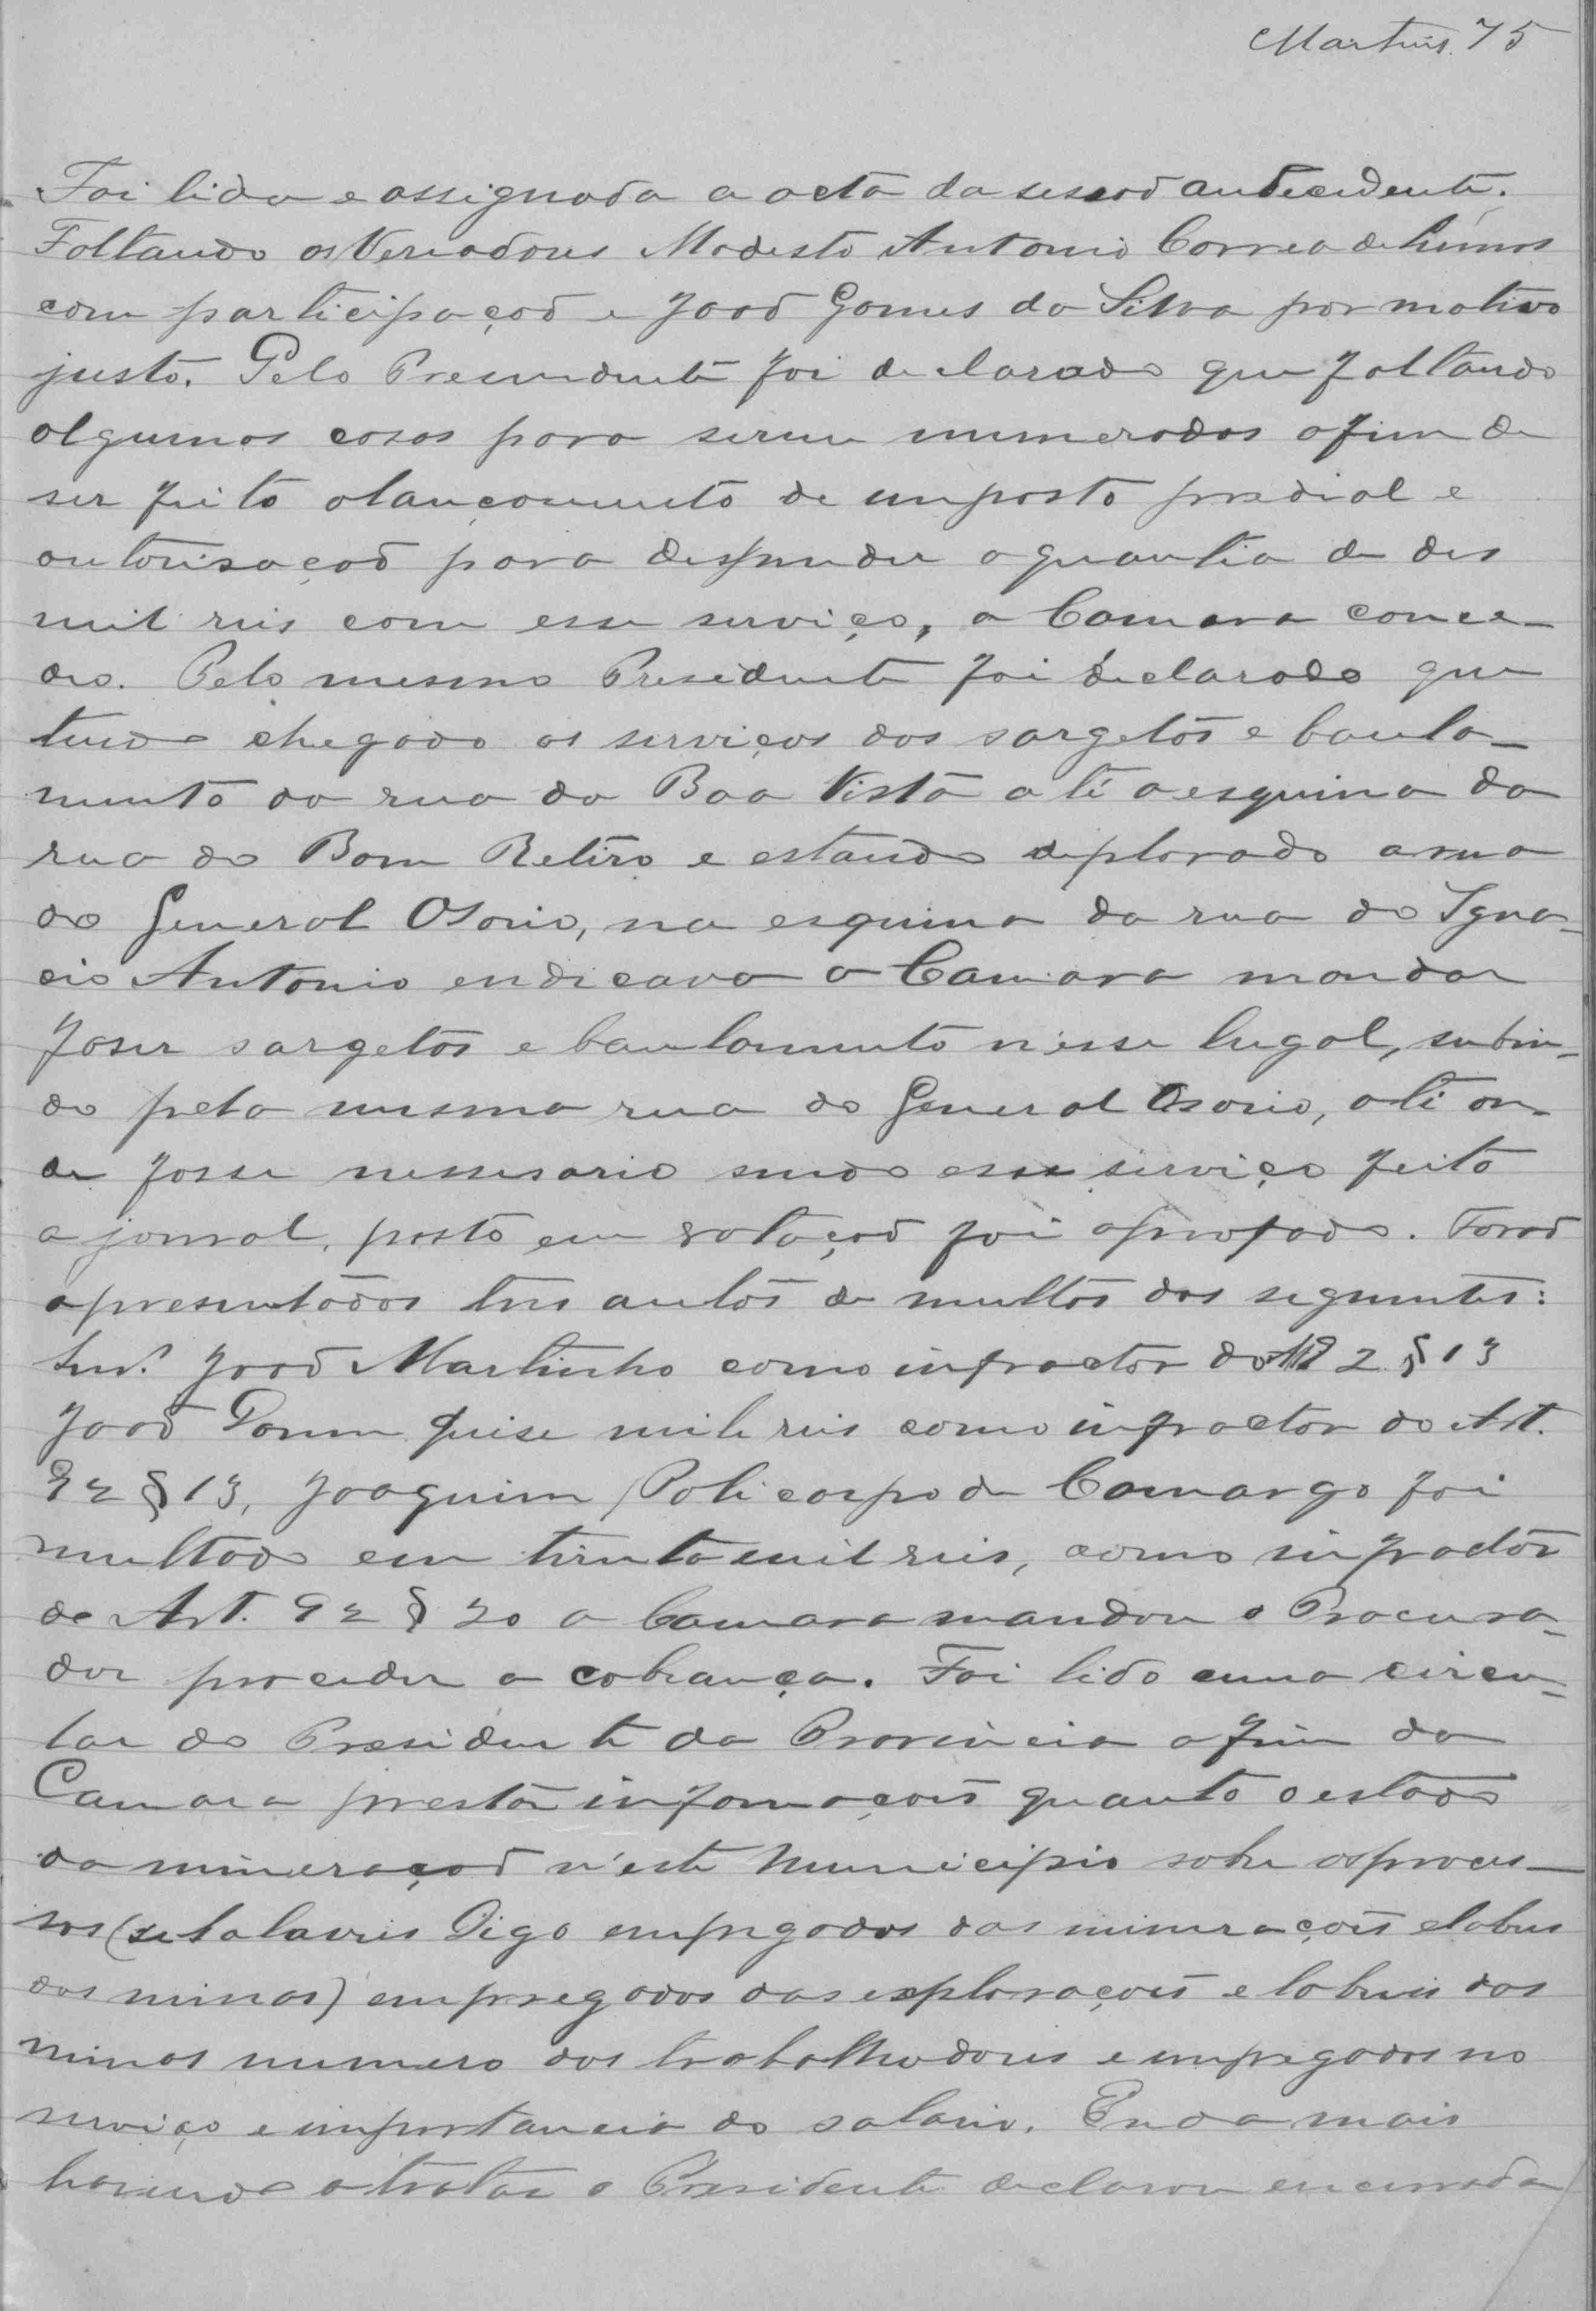 Martins. 75
Foi lida e assignada a acta da sessaõ antecedente.
Faltando os Vereadores Modesto Antonio Correa de Lemos
com participaçaõ e Joaõ Gomes da Silva por motivo
justo. Pelo Presendente foi declarado que faltando
algumas casas para serem numerados afim de
ser feito o lançamento de imposto predial e
autorisaçaõ para despender a quantia de des
mil reis com esse serviço, a Camara conce-
deo. Pelo mesmo Presidente foi declarado que
tendo chegado os serviços das sargetas e baula-
mento da rua da Boa Vista até a esquina da
rua do Bom Retiro e estando deplorado a rua
do General Osorio, na esquina da rua do Igna-
cio Antonio endicava a Camara mandar
faser sargetas e baulamento n'esse lugal, subin-
do pela mesma rua do General Osorio, até on-
de fosse nessesario sendo esse serviço feito
a jornal, posto em votaçaõ foi aprofado. Foraõ
apresentados tres autos de multas dos seguintes:
Snr. Joaõ Martinho como infractor do 2 § 13
Joaõ quise mil reis como infractor do Art.
92 § 13, Joaquim Policarpo de Camargo foi
multado em trinta mil reis, como infractor
do Art. 92 § 20 a Camara mandou o Procura-
dor proceder a cobrança. Foi lido uma circu-
lar do Presidente da Provincia afim da
Camara prestar informaçoẽs quanto o estado
da mineraçaõ n'este Municipio sobre os proces-
sos ( Digo empregados das mineraçoẽs e labres
das minas) empregados das exploraçoẽs e labres das
minas numero dos trabalhadores e empregados no
serviço e importancia do salario. E nada mais
havendo a tratar o Presidente declarou encerrada